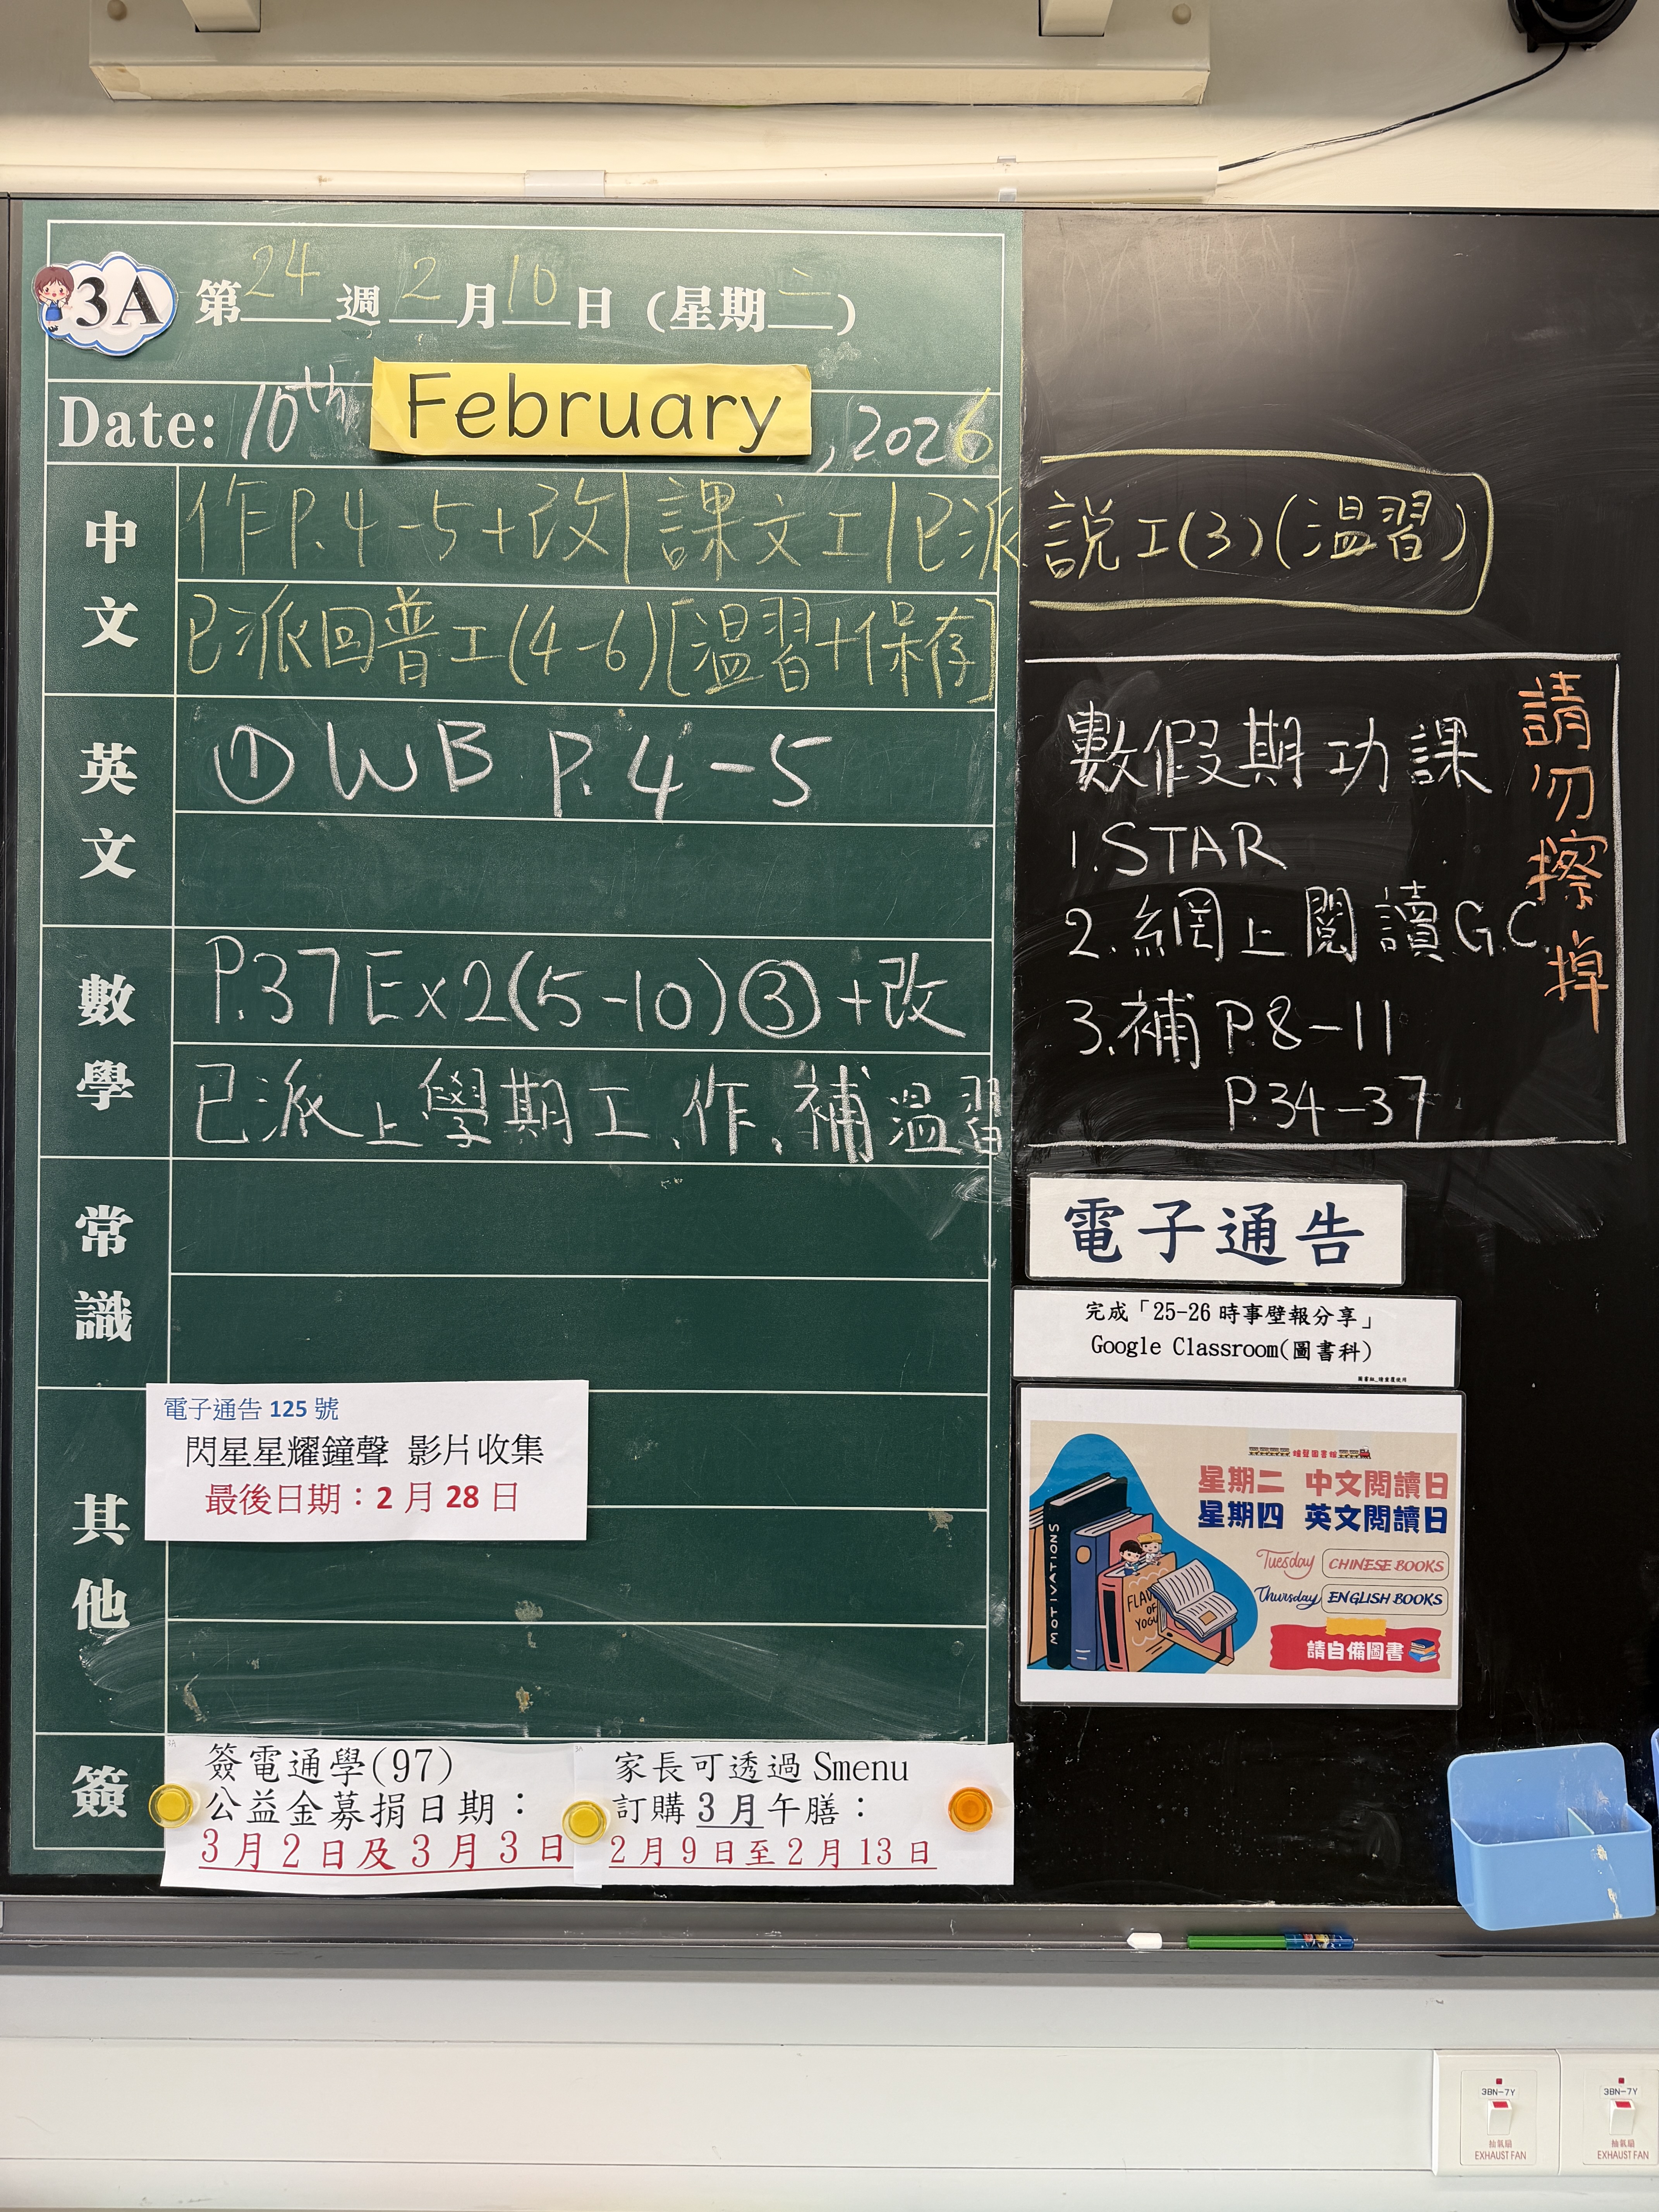 3A 第24週 2月10日 (星期二)
Date: 10th February, 2026
中文
作P.4-5+改|課文工|已派說工(3)(溫習)
已派回普工(4-6)[溫習+保存]
英文
① WB P.4-5
數學
P.37 Ex2(5-10)③+改
已派上學期工、作、補溫習
常識
其他
電子通告 125 號
閃星星耀鐘聲 影片收集
最後日期：2 月 28 日
簽
簽電通學(97)
公益金募捐日期：
3月2日及3月3日
家長可透過 Smenu
訂購 3 月午膳：
2月9日至2月13日
數假期功課
1.STAR
2.網上閱讀G.C.
3.補 P.8-11
P.34-37
請勿擦掉
電子通告
完成「25-26 時事壁報分享」
Google Classroom(圖書科)
鐘聲圖書館
星期二 中文閱讀日
星期四 英文閱讀日
Tuesday CHINESE BOOKS
Thursday ENGLISH BOOKS
請自備圖書
MOTIVATIONS
3BN-7Y
抽氣扇
EXHAUST FAN
3BN-7Y
抽氣扇
EXHAUST FAN